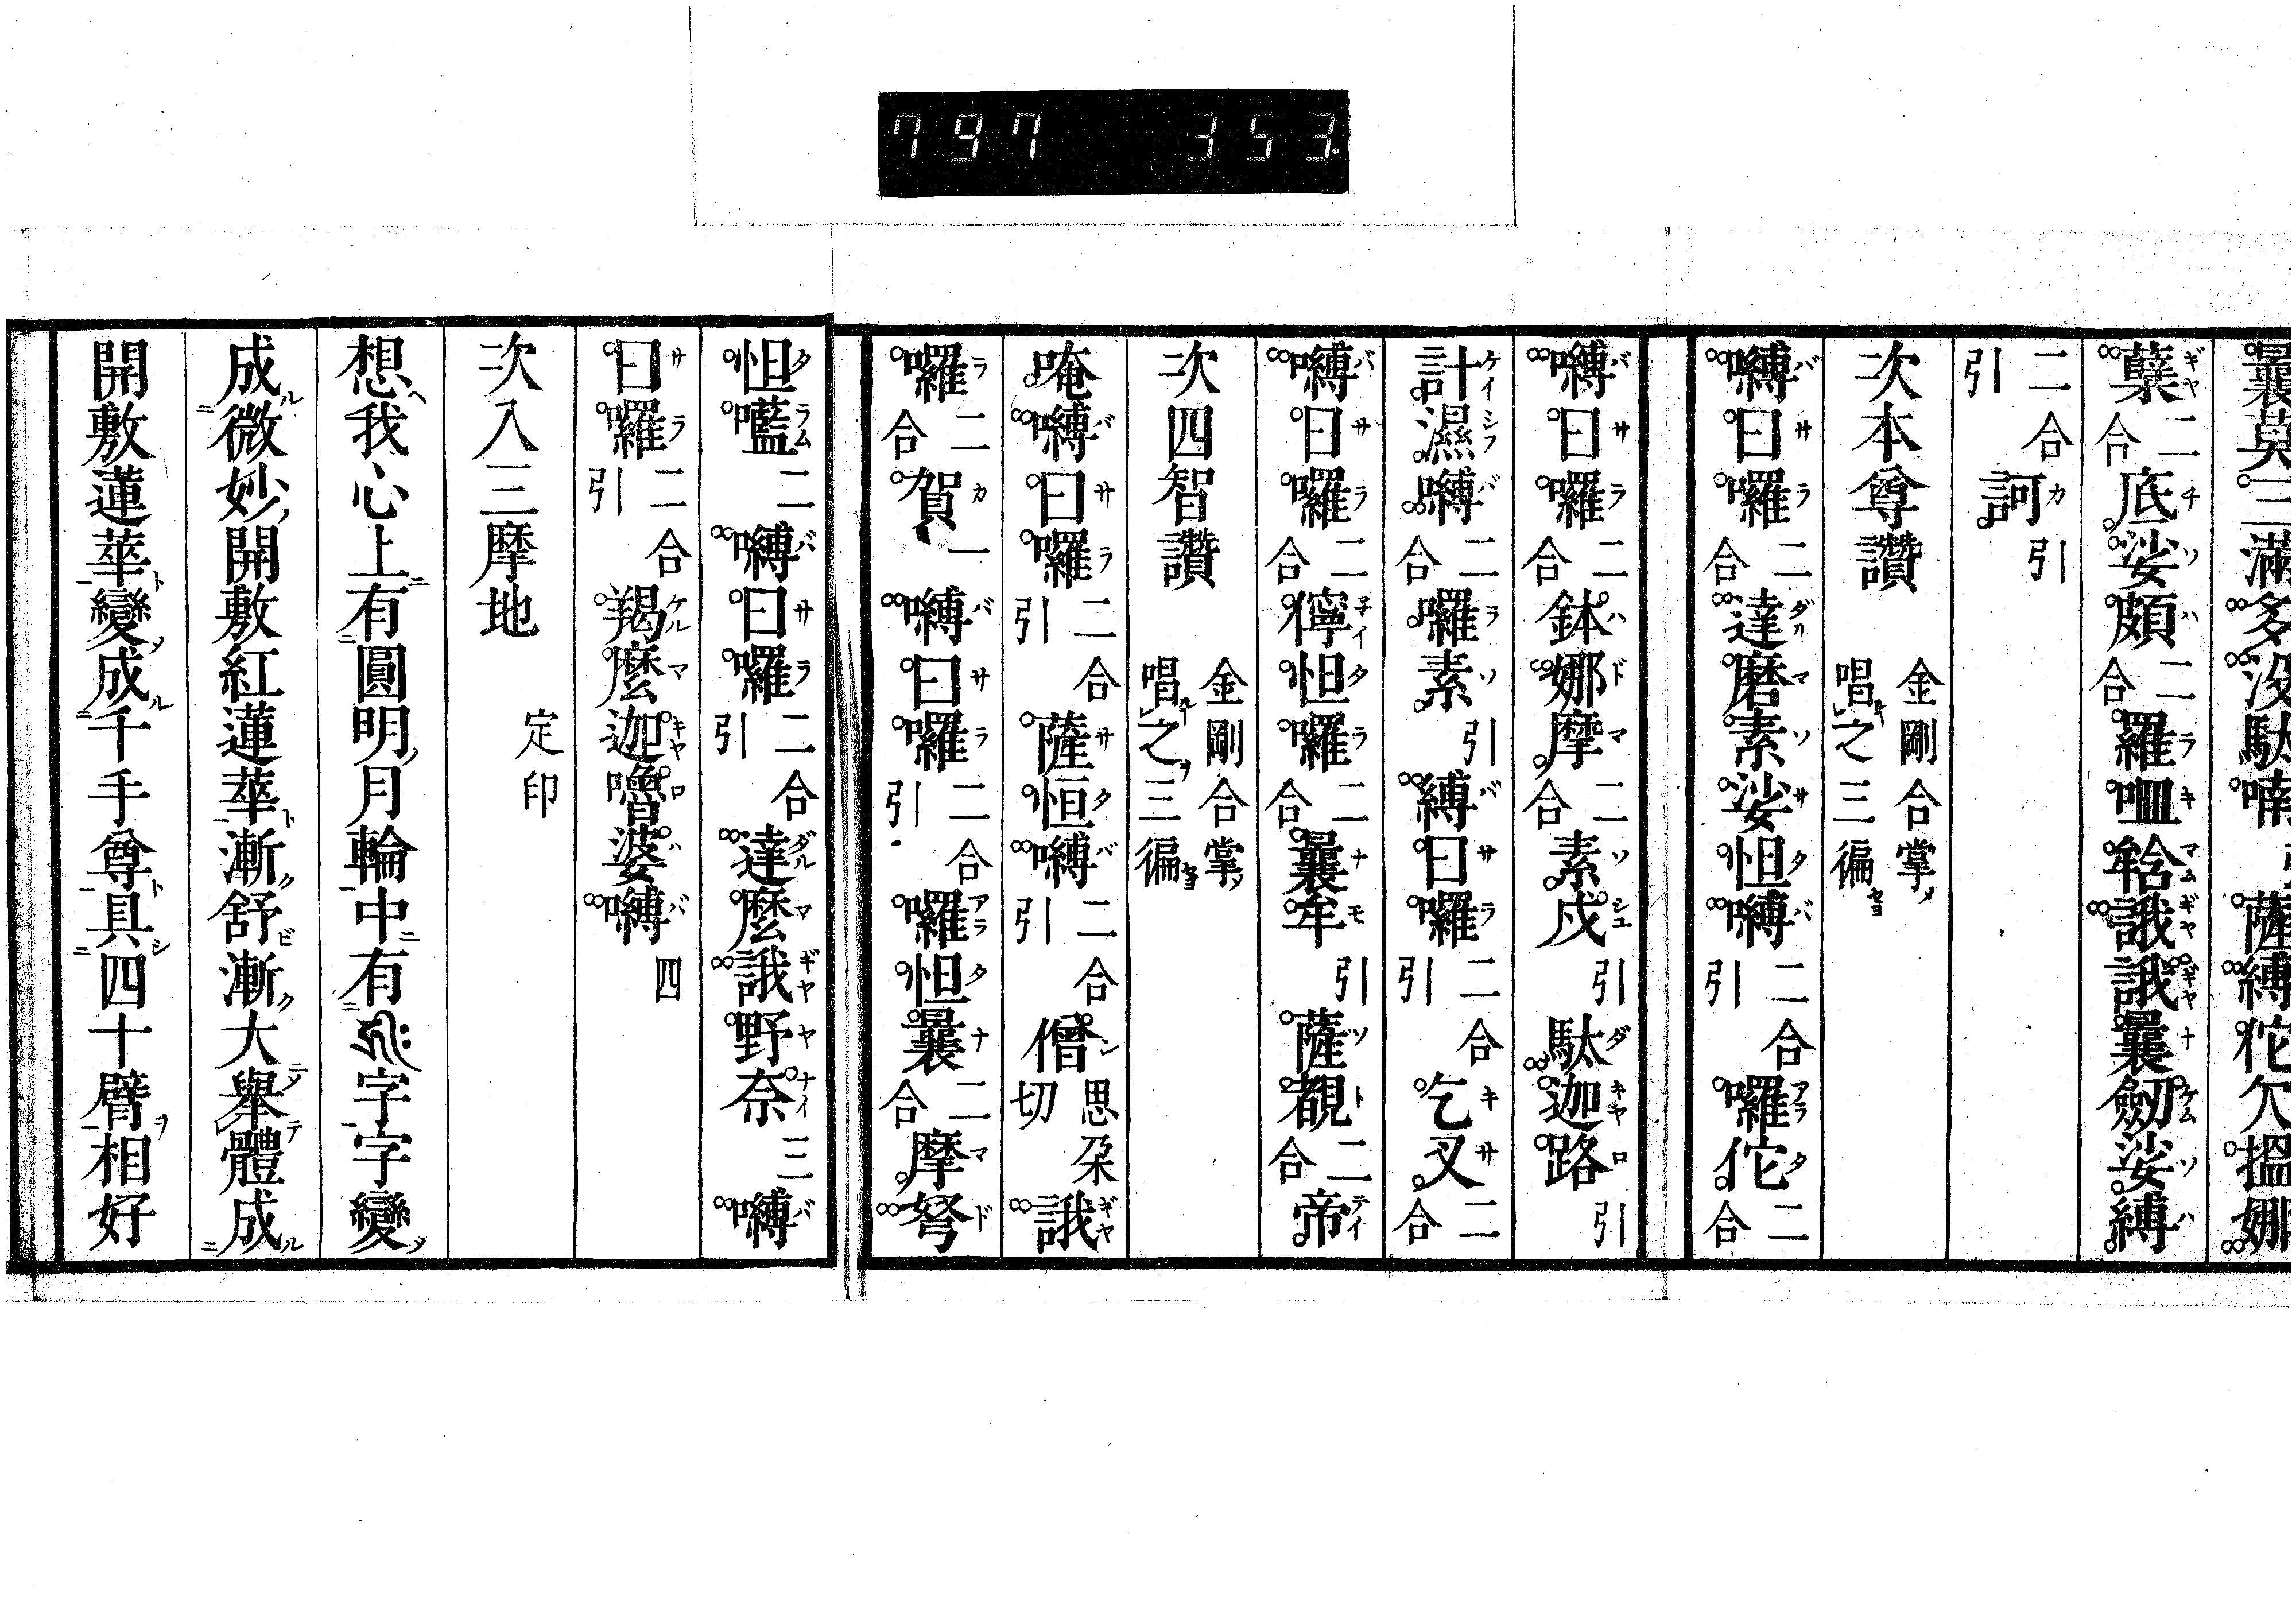 797 353
曩莫三滿多没馱喃引薩縛佗欠搵娜
蘖二合底娑頗二合羅呬𤚥誐誐曩劔娑縛
二合引訶引
次本尊讚 金剛合掌〆唱之三徧セヨ
嚩日囉二合達磨素娑怛嚩二合引囉佗二合
嚩日囉二合鉢娜摩二合素戍引馱迦路引
計濕嚩二合囉素引縛日囉二合引乞叉二合
嚩日囉二合儜怛囉二合曩牟引薩覩二合帝
次四智讚 金剛合掌〆唱之三徧セヨ
唵嚩日囉二合引薩怛嚩二合引僧思朶切誐
囉二合賀一嚩日囉二合引囉怛曩二合摩弩
怛嚂二嚩日囉二合引達麼誐野奈三嚩
日囉二合引羯麼迦嚕婆嚩四
次入三摩地 定印
想我心上有圓明月輪中有字字變
成微妙開敷紅蓮華漸舒漸大舉體成
開敷蓮華變成千手尊具四十臂相好